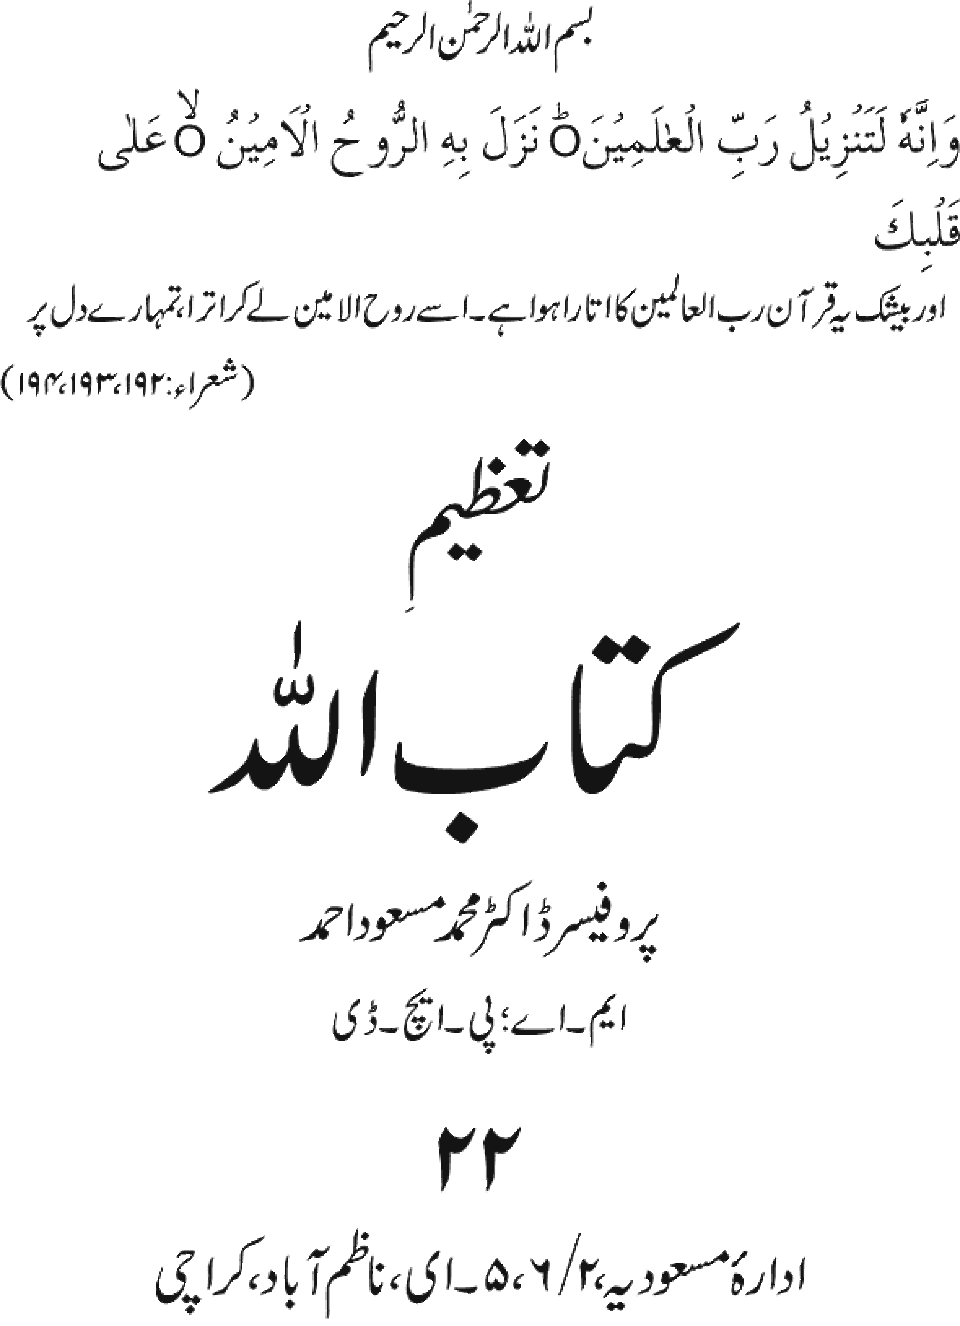 بسم اللہ الرحمٰن الرحیم
وَاِنَّهٗ لَتَنْزِيْلُ رَبِّ الْعٰلَمِيْنَؕ o نَزَلَ بِهِ الرُّوحُ الْاَمِيْنُ ۙo عَلٰى
قَلْبِكَ
اور بیشک یہ قرآن رب العالمین کا اتارا ہوا ہے۔ اسے روح الامین لے کر اترا، تمہارے دل پر
(شعراء:۱۹۲،۱۹۳،۱۹۴)
تعظیمِ
کتاب اللہ
پروفیسر ڈاکٹر محمد مسعود احمد
ایم۔اے؛ پی۔ایچ۔ڈی
۲۲
ادارۂ مسعودیہ، ۶/۲، ۵۔ای، ناظم آباد، کراچی